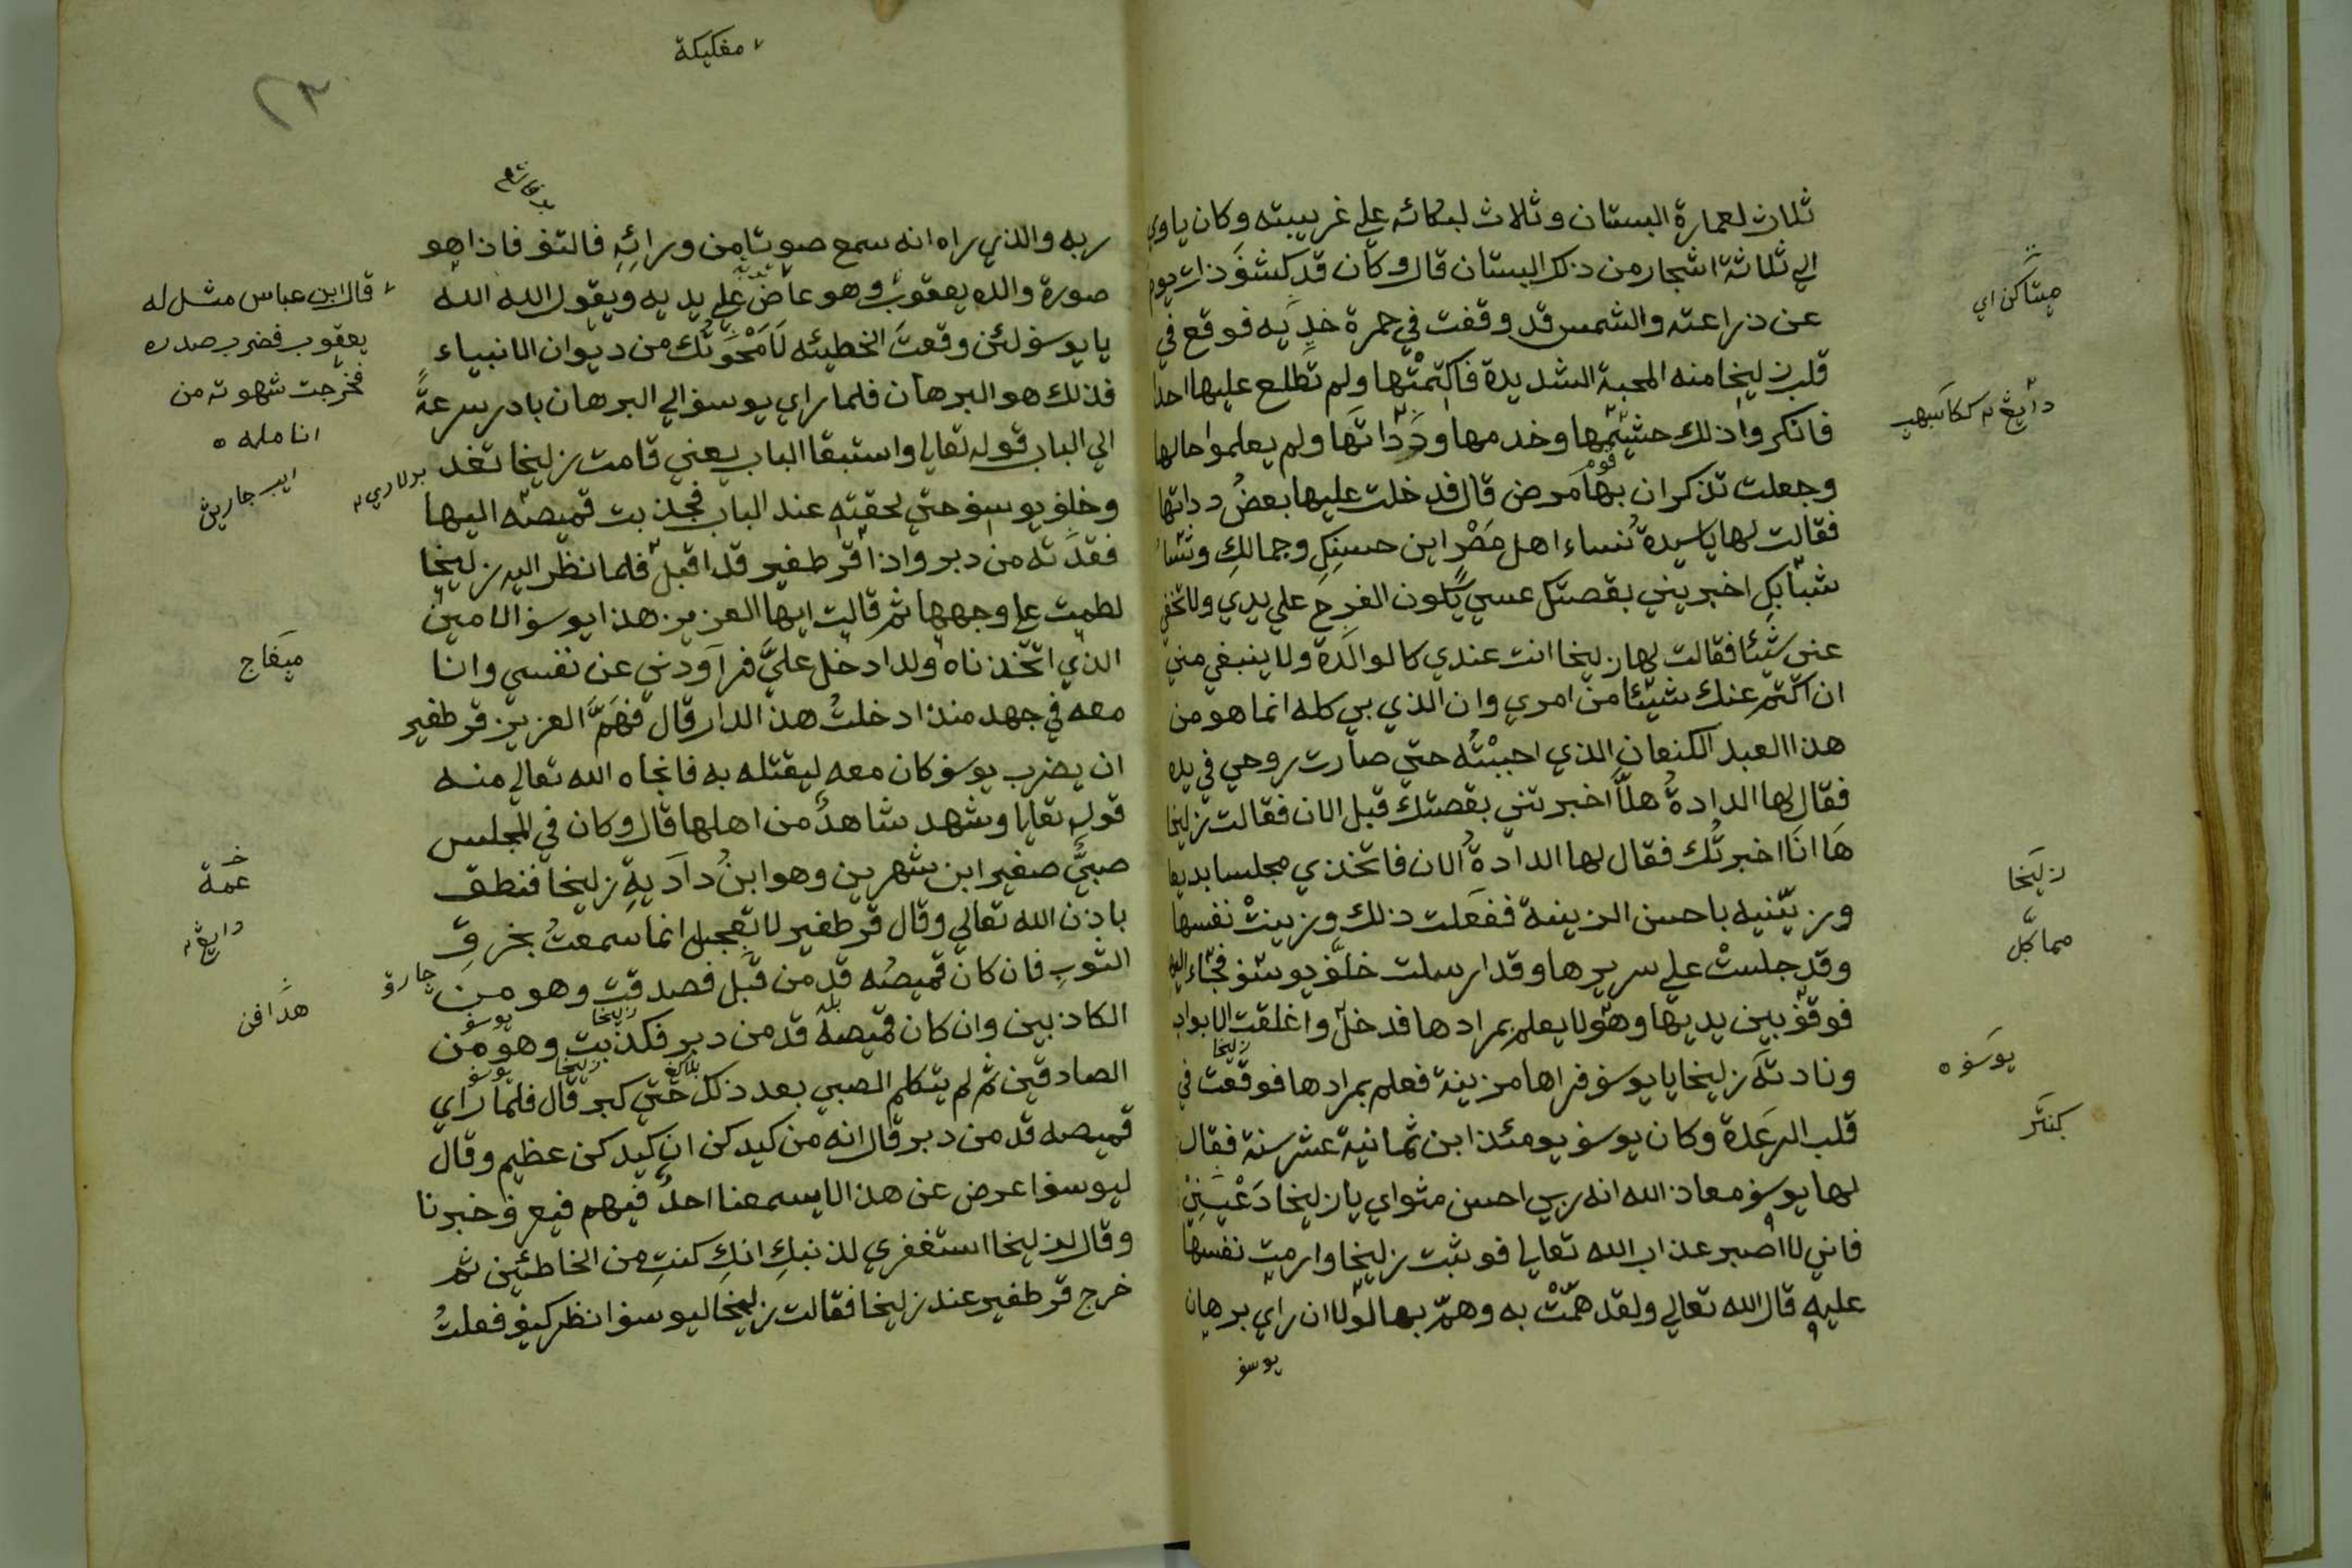 ثلاث لعمارة البستان وثلاث لبكائه علي غريبته وكان ياوي
الي ثلاثة اشجار من ذلك البستان قال وكان قد كشف ذات يوم
عن ذراعته والشمس قد وقفت في حمرة خديه فوقع في
قلب زليخا منه المحبة الشديدة فاكتمتها ولم تطلع عليها احدا
فانكروا ذلك حشيمها وخدمها وداداتها ولم يعلموا حالها
وجعلت تذكر ان بها مرض قال فدخلت عليها بعض دداتها
فقالت لها ياسيدة نساء اهل مصر اين حسنك وجمالك
شبابك اخبريني بقصتك عسي يكون الفرج علي يدي ولا تخفي
عني شيئا فقالت لها زليخا انت عندي كالوالدة ولا ينبغي مني
ان اكتم عنك شيئا من امري وان الذي بي كله انما هو من
هذا العبد الكنعان الذي احببته حتي صارت روحي في يده
فقال لها الدادة هلا اخبرتني بقصتك قبل الان فقالت زليخا
ها انا اخبرتك فقال لها الدادة الان فاتخذي مجلسا بديعا
وزيّنيه باحسن الزينة ففعلت ذلك وزينت نفسها
وقد جلست علي سريرها وقد ارسلت خلف يوسف فجاء اليها
فوقف بين يديها وهو لا يعلم بمرادها فدخل واغلقت الابواب
ونادته زليخا يا يوسف فراها مزينة فعلم بمرادها فوقعت في
قلب الرعدة وكان يوسف يومئذ ابن ثمانية عشر سنة فقال
لها يوسف معاذ الله انه ربي احسن مثواي يا زليخا دعيني
فاني لا اصبر عذاب الله تعالي فوثبت زليخا وارمت نفسها
عليه قال الله تعالي ولقد همّت به وهمّ بها لولا ان راي برهان
يوسف
زليخا
يوسف ه
زليخا
٧ مغكيكة
٢٣
ربه والذي راه انه سمع صوتا من ورائه فالتف فاذا هو
صورة والده يعقوب وهو عاض علي يديه ويقول الله الله
يا يوسف لئن وقعت الخطيئه لامحونك من ديوان الانبياء
فذلك هو البرهان فلما راي يوسف الي البرهان بادر سرعة
الي الباب قوله تعالي واستبقا الباب يعني قامت زليخا تغد
وخلف يوسف حتي لحقيته عند الباب فجذبت قميصه اليها
فقدته من دبر واذا قرطفير قد اقبل فلما نظر اليه زليخا
لطمت علي وجهها ثم قالت ايها العزيز هذا يوسف الامين
الذي اتخذناه ولدا دخل عليّ فراودني عن نفسي وانا
معه في جهد منذ ادخلت هذ الدار قال فهمّ العزيز قرطفير
ان يضرب يوسف كان معه ليقتله به فانجاه الله تعالي منه
قوله تعالي وشهد شاهد من اهلها قال وكان في المجلس
صبيّ صغير ابن شهرين وهو ابن دادية زليخا فنطق
باذن الله تعالي وقال قرطفير لا تعجل انما سمعت بخرق
الثوب فان كان قميصه قد من قبل فصدقت وهو من
الكاذبين وان كان قميصه قد من دبر فكذبت وهو من
الصادقين ثم لم يتكلم الصبي بعد ذلك حتي كبر قال فلما راي
قميصه قد من دبر قال انه من كيدكن ان كيدكن عظيم وقال
ليوسف اعرض عن هذا لا يسمعنا احد فيهم فيعرف خبرنا
وقال لزليخا استغفري لذنبك انك كنت من الخاطئين ثم
خرج قرطفير عند زليخا فقالت زليخا ليوسف انظر كيف فعلت
٧ قال ابن عباس مثل له
يعقوب فضرب صدره
فخرجت شهوته من
انامله ه
ميغاج
عمة
چارق
هدافن